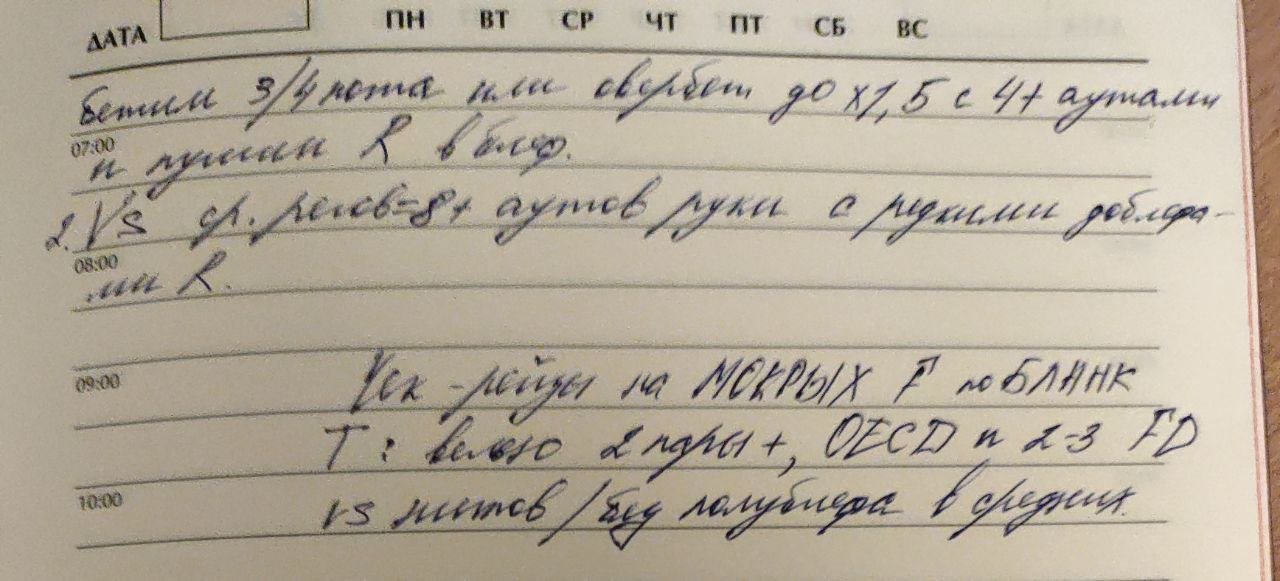 ДАТА ПН ВТ СР ЧТ ПТ СБ ВС
бетим 3/4 пота или овербет до х1,5 с 4+ аутами
07:00
и пушим R в блеф.
2. Vs ср. регов=8+ аутов руки с редкими доблефа-
08:00
ми R.
09:00
Чек-рейзы на МОКРЫХ F по БЛАНК
T: велью 2 пары+, OESD и 2-3 FD
10:00
vs нитов / без полублефа в средних.